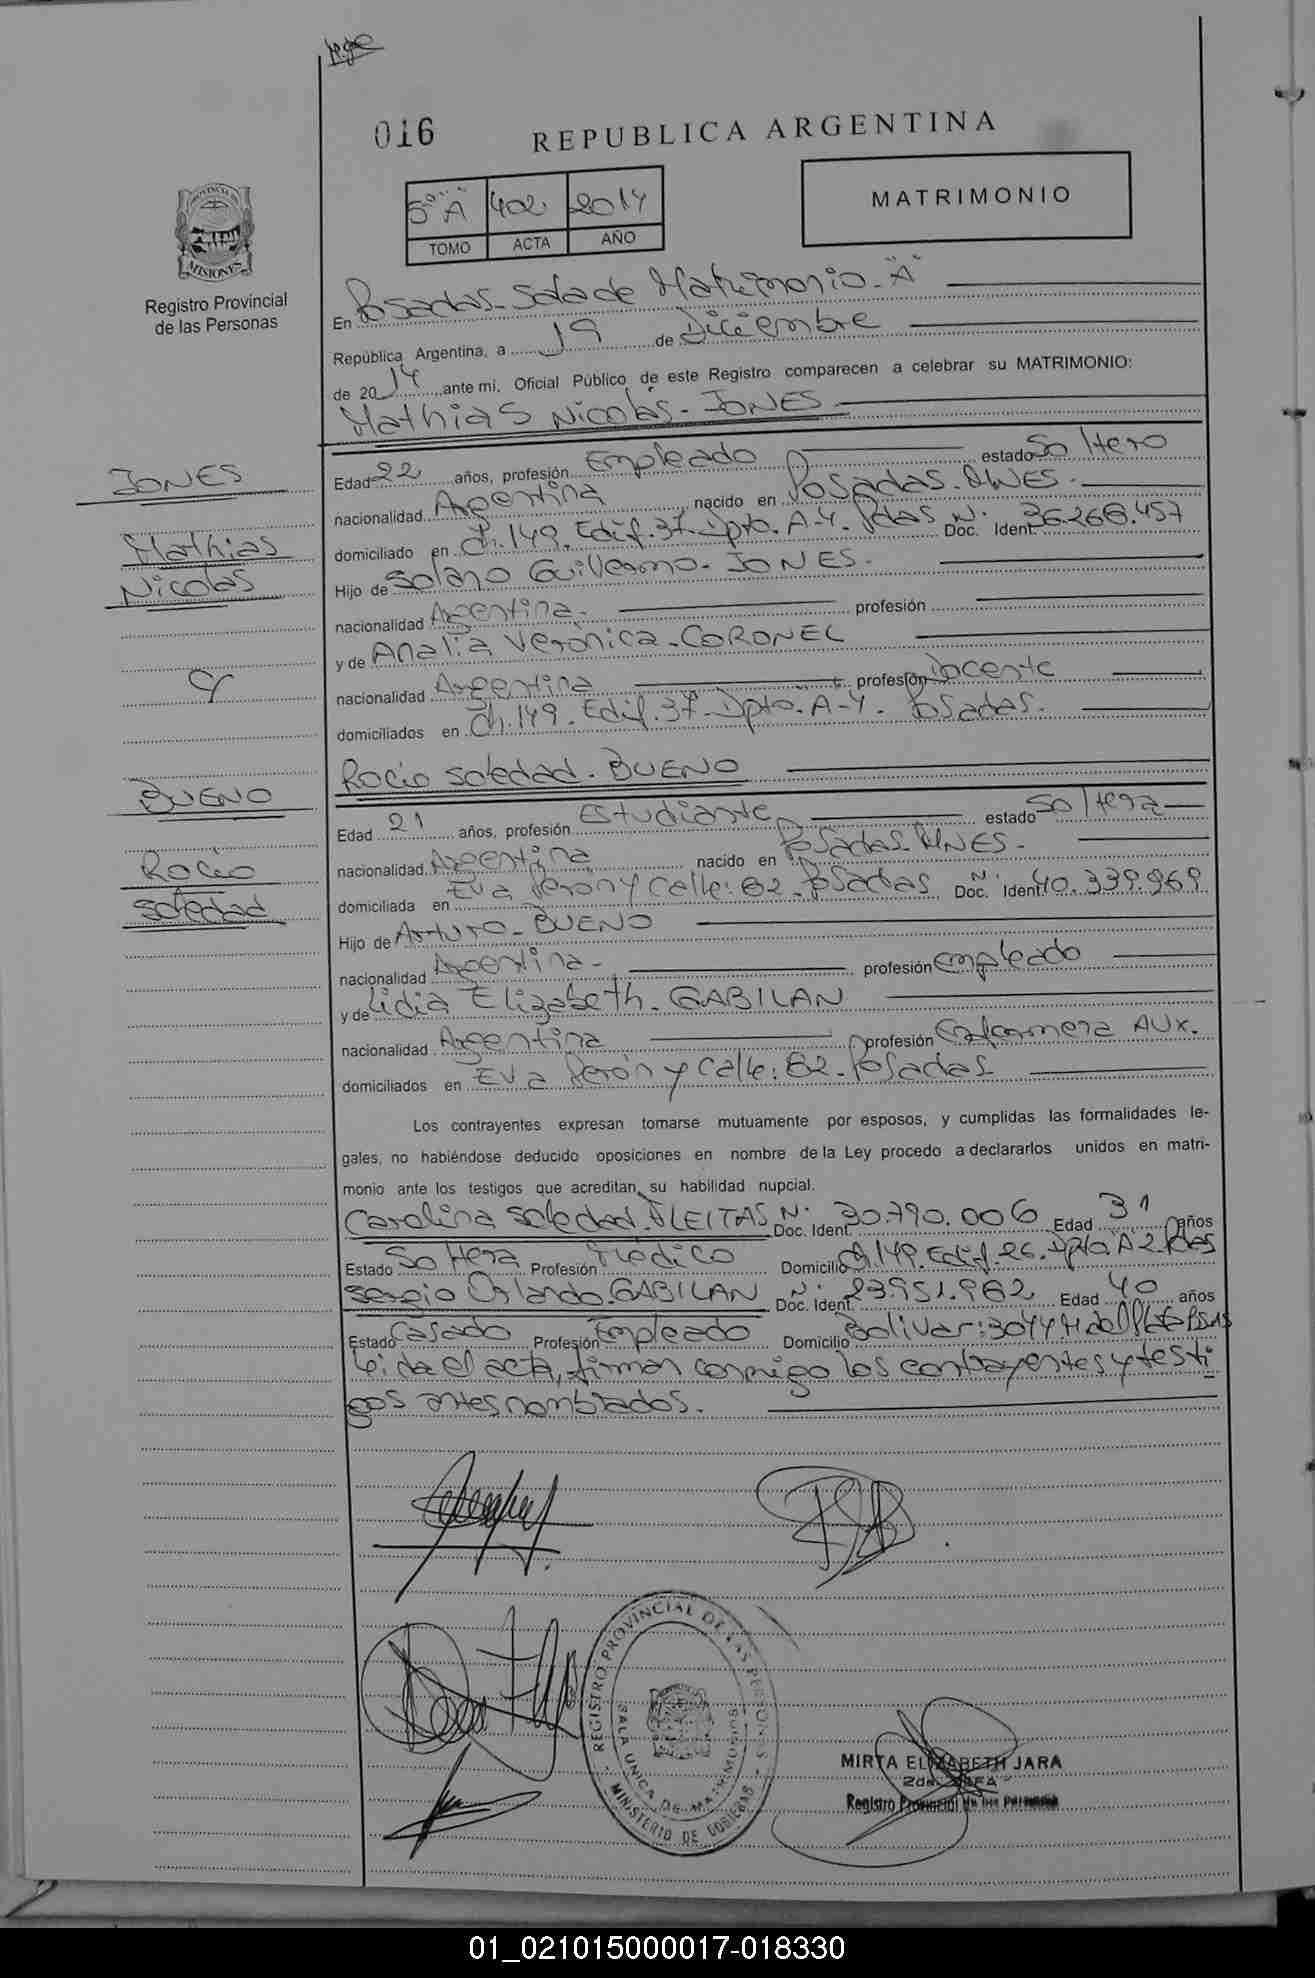 016
REPUBLICA ARGENTINA
MATRIMONIO
5° "A" 402 2014
TOMO ACTA AÑO
PROVINCIA DE
MISIONES
Registro Provincial
de las Personas
En Posadas - Sala de Matrimonio - "A"
República Argentina, a 19 de Diciembre
de 2014 ante mi, Oficial Público de este Registro comparecen a celebrar su MATRIMONIO:
Mathias Nicolás - JONES
JONES
Mathias
Nicolás
y
BUENO
Rocío
Soledad
Edad 22 años, profesión Empleado estado Soltero
nacionalidad Argentina nacido en Posadas. MNES.
domiciliado en Ch. 149. Edif. 37. Dpto. A-4. Pdas N° Doc. Ident. 36.268.457
Hijo de Solano Guillermo - JONES.
nacionalidad Argentina. profesión
y de Analía Verónica - CORONEL
nacionalidad Argentina profesión Docente
domiciliados en Ch. 149. Edif. 37. Dpto. A-4. Posadas.
Rocío Soledad. BUENO
Edad 21 años, profesión Estudiante estado Soltera
nacionalidad Argentina nacido en Posadas. MNES.
domiciliada en Eva Perón y Calle: 82. Posadas N° Doc. Ident. 40.339.969
Hijo de Arturo - BUENO
nacionalidad Argentina - profesión Empleado
y de Lidia Elizabeth. GABILAN
nacionalidad Argentina profesión Enfermera AUX.
domiciliados en Eva Perón y Calle: 82. Posadas
Los contrayentes expresan tomarse mutuamente por esposos, y cumplidas las formalidades le-
gales, no habiéndose deducido oposiciones en nombre de la Ley procedo a declararlos unidos en matri-
monio ante los testigos que acreditan su habilidad nupcial.
Carolina Soledad. FLEITAS N° Doc. Ident. 30.790.006 Edad 31 años
Estado Soltera Profesión Médico Domicilio Ch. 149. Edif. 26. Dpto. A 2. Pdas
Sergio Orlando. GABILAN N° Doc. Ident. 23.951.962 Edad 40 años
Estado Casado Profesión Empleado Domicilio Bolivar: 3044 M del Plata
Leída el acta, firman conmigo los contrayentes y testi-
gos antes nombrados.
REGISTRO PROVINCIAL DE LAS PERSONAS
SALA UNICA DE MATRIMONIOS
MINISTERIO DE GOBIERNO
MIRTA ELIZABETH JARA
2da. JEFA
Registro Provincial de las Personas
01_021015000017-018330